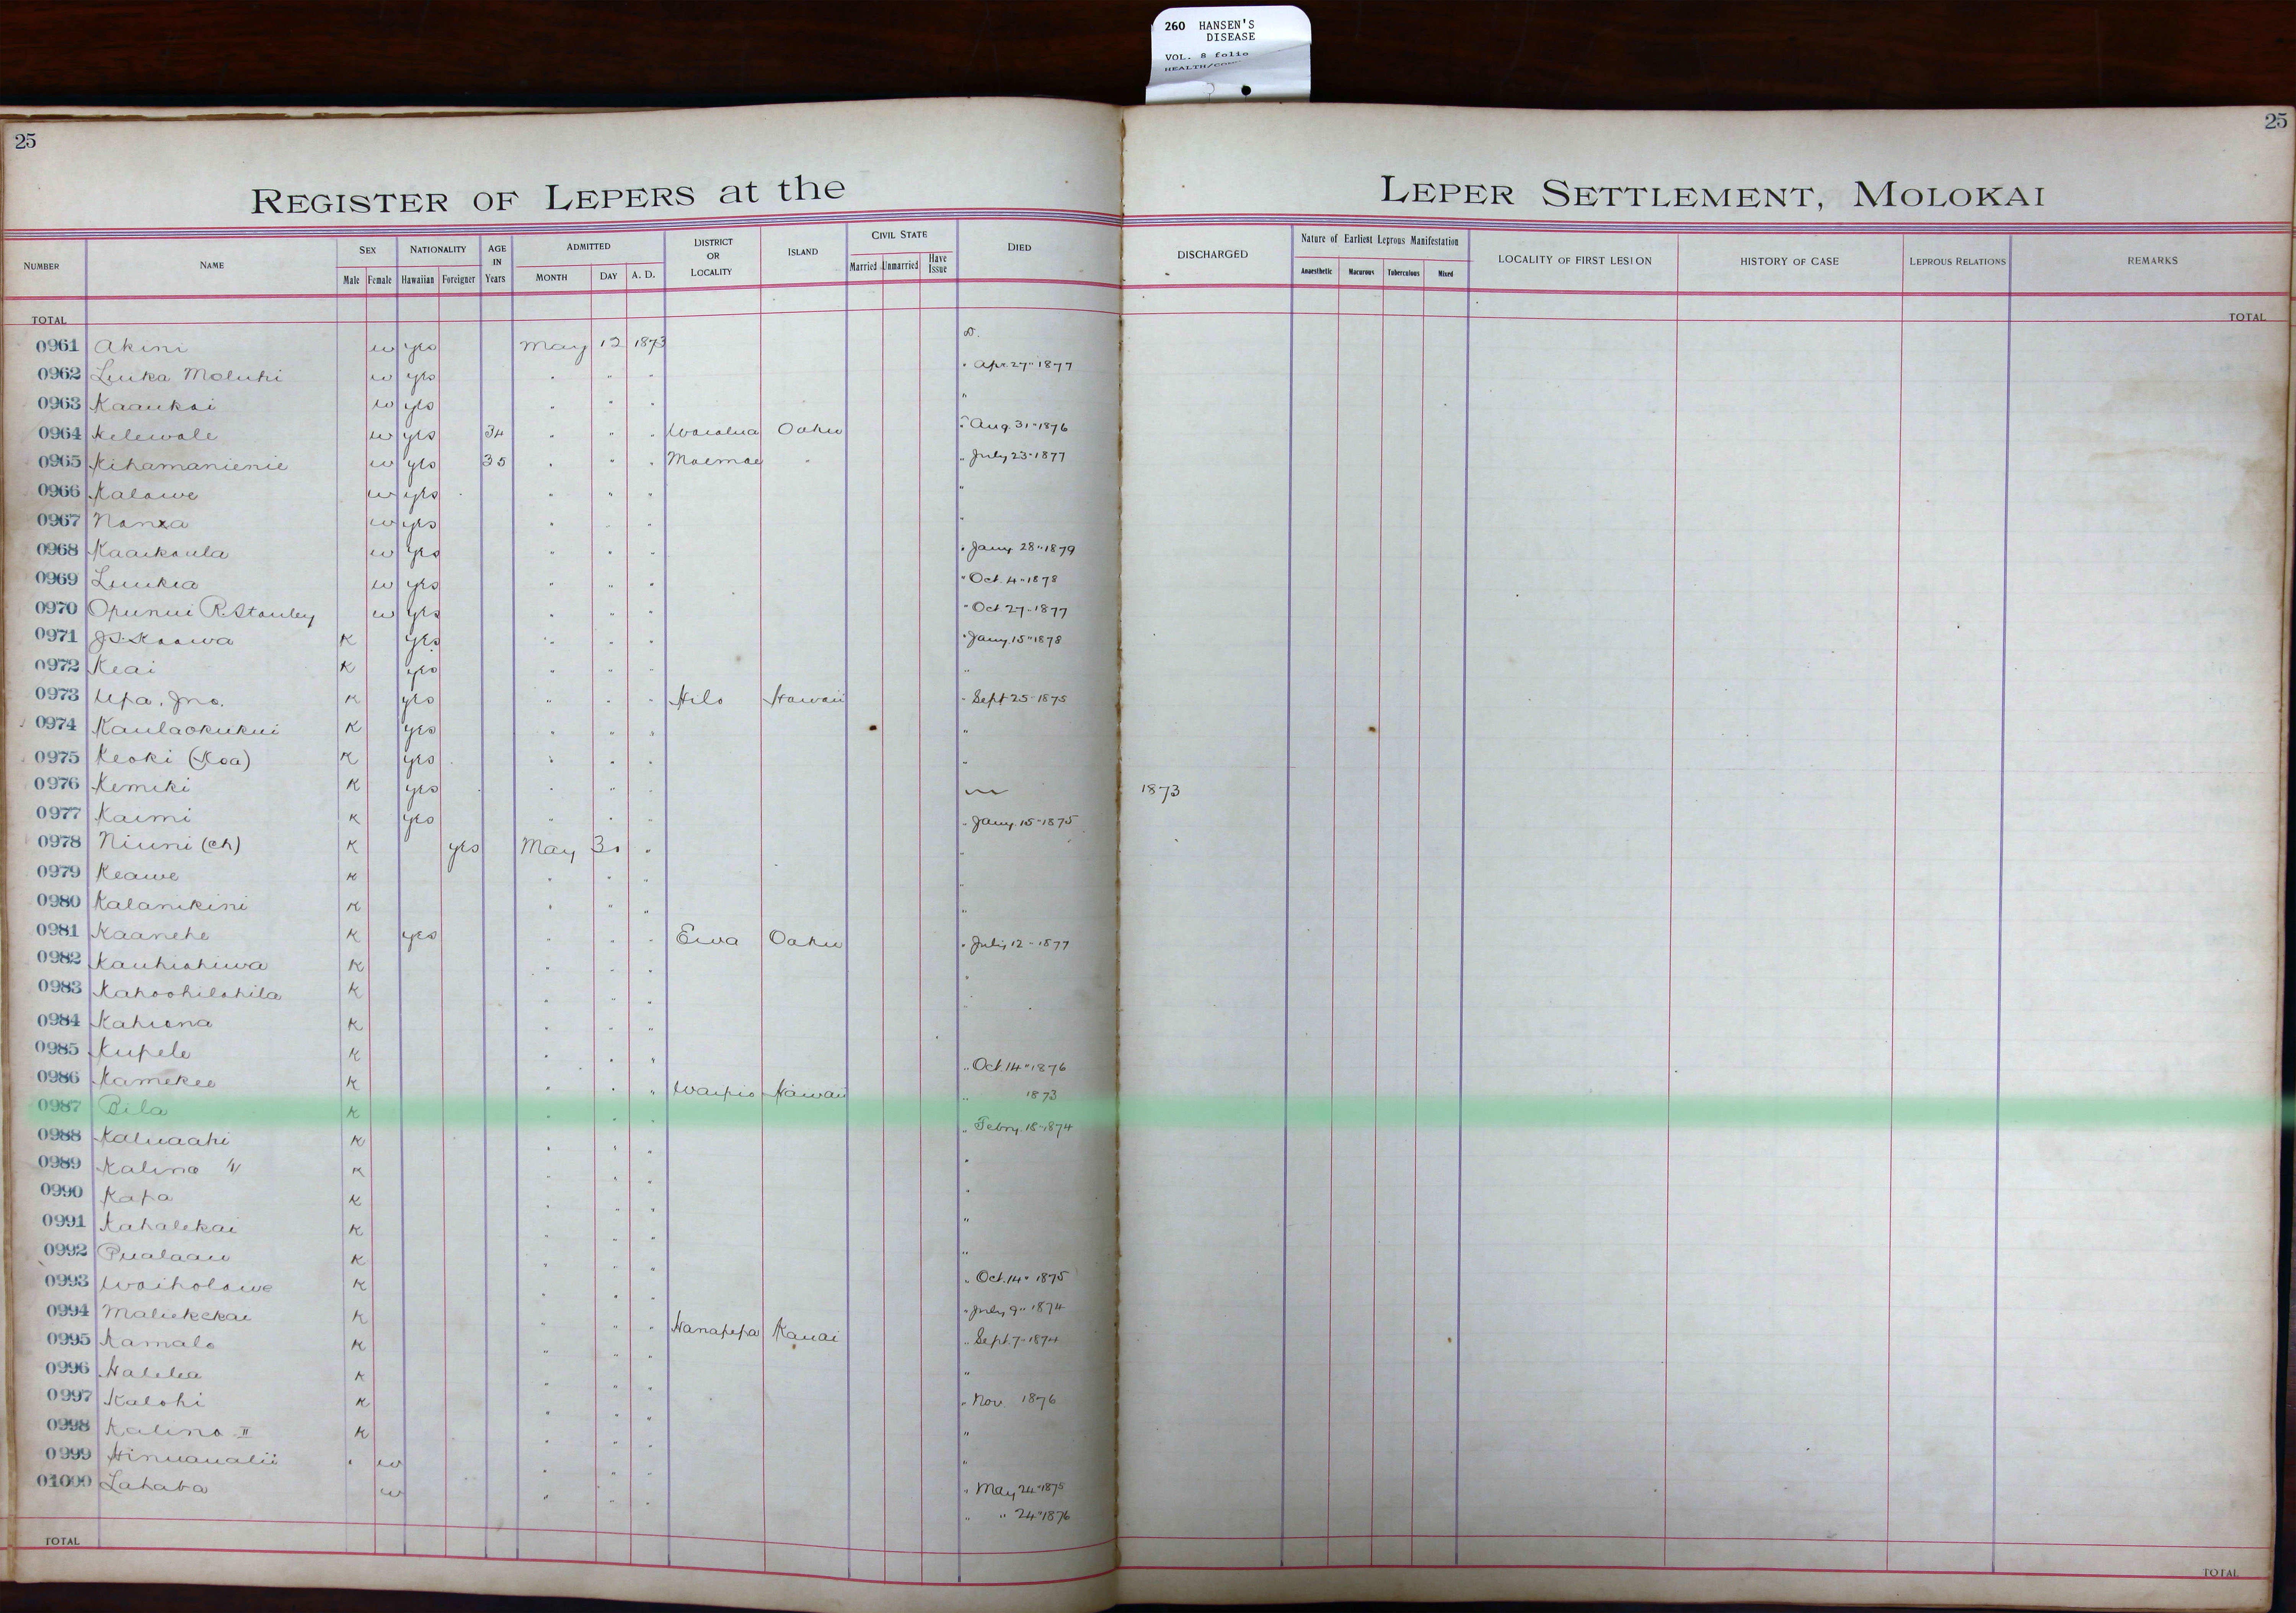 260 HANSEN'S
DISEASE
VOL. 8 folio
25
25
REGISTER OF LEPERS at the LEPER SETTLEMENT, MOLOKAI
NUMBER NAME SEX Male Female NATIONALITY Hawaiian Foreigner AGE IN Years ADMITTED MONTH DAY A. D. DISTRICT OR LOCALITY ISLAND CIVIL STATE Married Unmarried Have Issue DIED DISCHARGED Nature of Earliest Leprous Manifestation Anaesthetic Macurous Tuberculous Mixed LOCALITY OF FIRST LESION HISTORY OF CASE LEPROUS RELATIONS REMARKS
TOTAL TOTAL
0961 Akini w yes May 12 1873 D.
0962 Luika Moluhi w yes " " " " Apr. 27" 1877
0963 Kaaukai w yes " " " "
0964 Kelewale w yes 34 " " " Waialua Oahu " Aug. 31" 1876
0965 Kihamanienie w yes 35 " " " Moemoe " " July 23" 1877
0966 Kalawe w yes " " " "
0967 w yes " " " "
0968 Kaaikaula w yes " " " " Jany. 28" 1879
0969 Luukia w yes " " " " Oct. 4" 1878
0970 Opunui R. Stanley w yes " " " " Oct 27" 1877
0971 J.S. Kaawa K yes " " " " Jany. 15" 1878
0972 Keai K yes " " " "
0973 Upa. Jno. K yes " " " Hilo Hawaii " Sept 25" 1875
0974 Kaulaokukui K yes " " " "
0975 Keoki (Koa) K yes " " " "
0976 Kemiki K yes " " " 1873
0977 Kaimi K yes " " " " Jany. 15" 1875
0978 Niuni (ch) K yes May 30 " "
0979 Keawe K " " " "
0980 Kalanikini K " " " "
0981 Kaanehe K yes " " " Ewa Oahu " July 12" 1877
0982 Kauhiohiwa K " " " "
0983 Kahoohilohila K " " " "
0984 Kahiona K " " "
0985 Kupele K " " " " Oct. 14" 1876
0986 Kamekeo K " " " Waipio Hawaii " 1873
0987 Pila K " " " Febry. 18" 1874
0988 Kaluaahi K " " " "
0989 Kalino K " " " "
0990 Kapa K " " " "
0991 Kahalekai K " " " "
0992 Pualaau K " " "
0993 Waiholowe K " " " " Oct. 14" 1875
0994 Maliekekai K " " " Hanapepa Kauai " July 9" 1874
0995 Kamalo K " " " " Sept. 7" 1874
0996 Halelea K " " " "
0997 Kalohi K " " " " Nov. 1876
0998 Kalino II K " " " "
0999 Hinuaualii w " " " "
01000 Lahaba w " " " " May 24" 1875
" " 24" 1876
TOTAL TOTAL